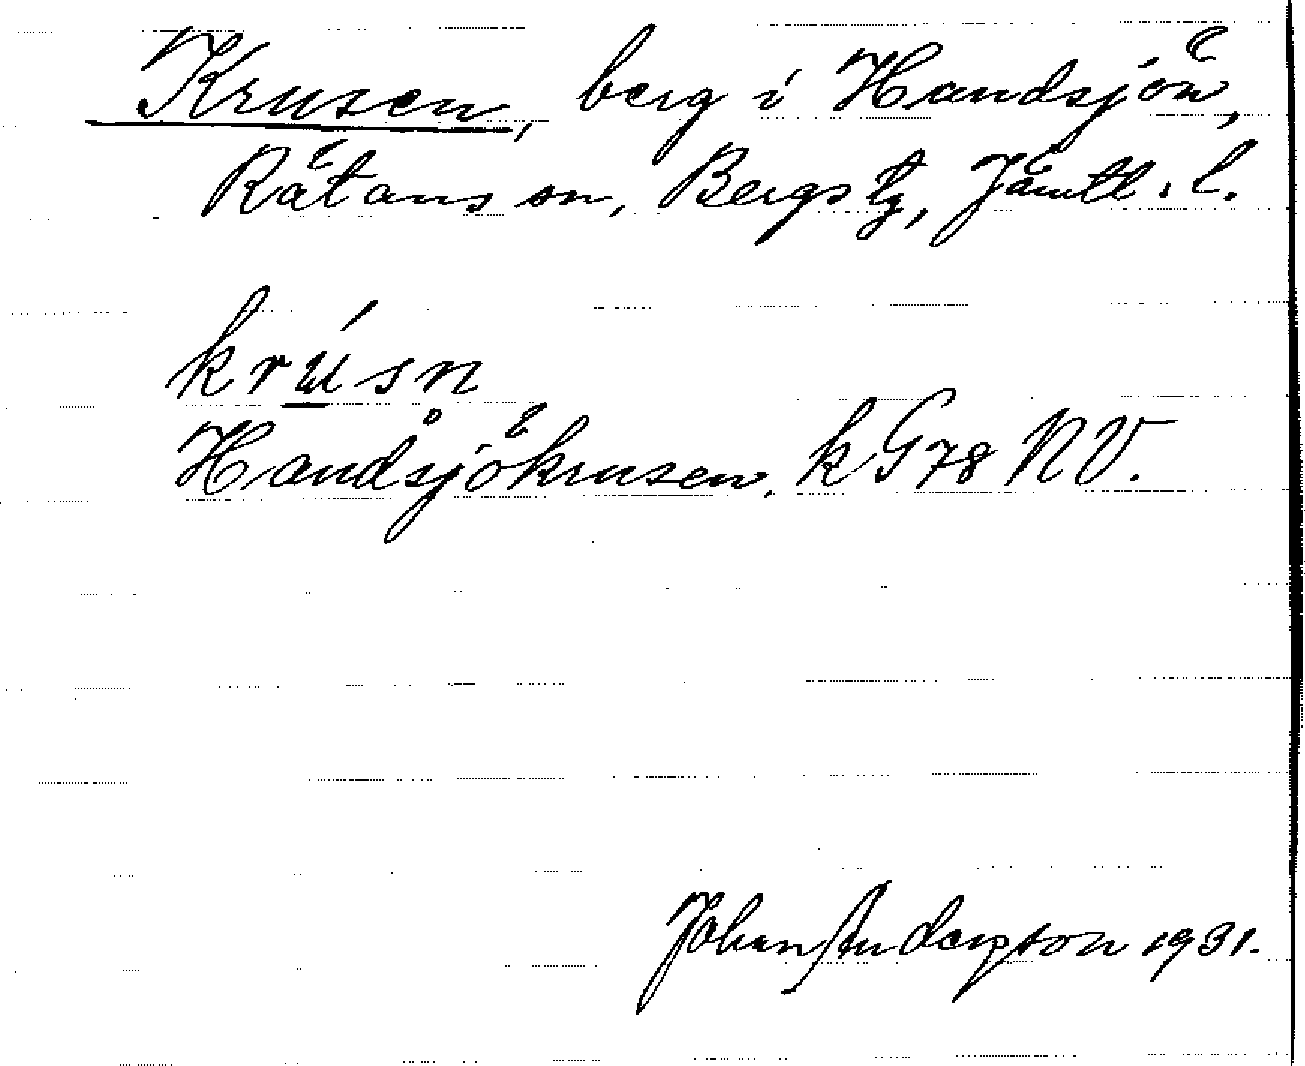 Krusen, berg i Handsjön,
Rätans sn, Bergs tg, Jämtl. l.
krúsn
Håndsjökrusen. k G78 NV.
Johan Anderson 1931.